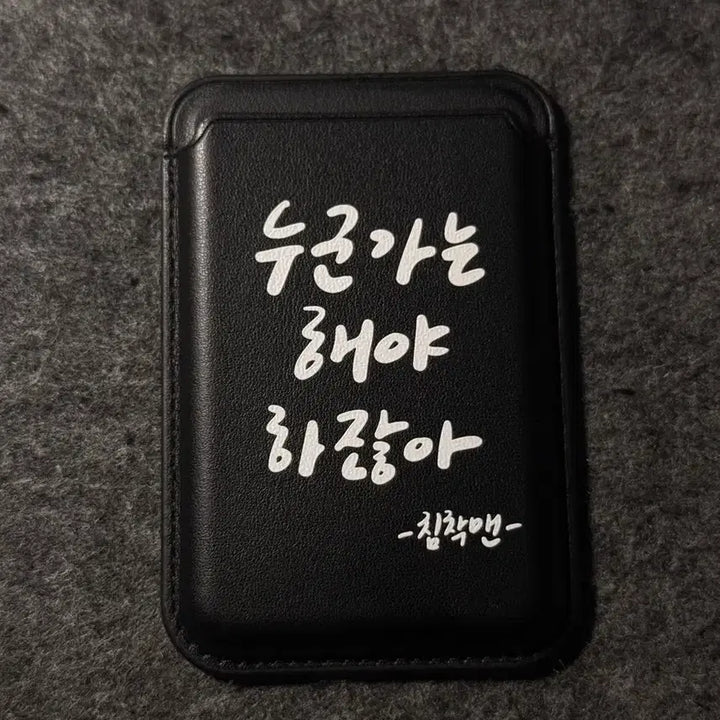 누군가는
해야
하잖아
-침착맨-